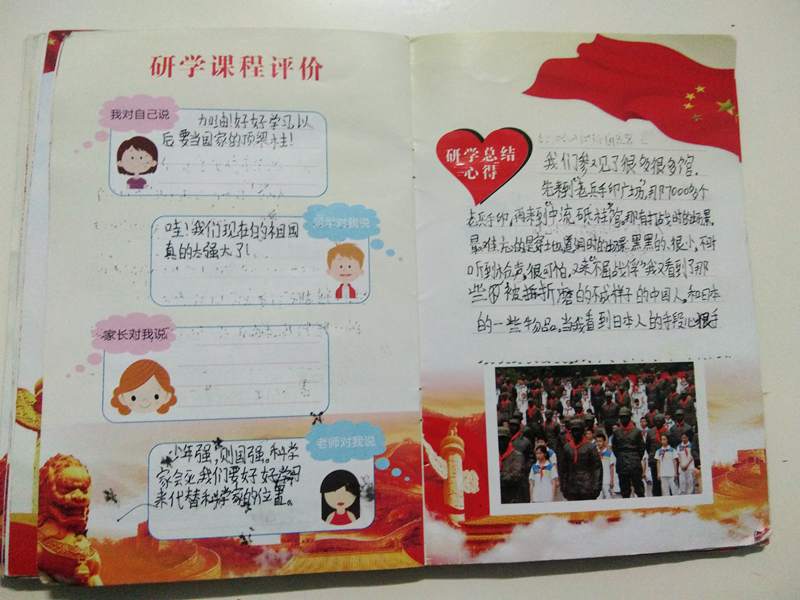 研学课程评价
我对自己说
加油!好好学习以
后要当国家的顶梁柱!
同学对我说
哇!我们现在的祖国
真的太强大了!
家长对我说
老师对我说
少年强,则国强。科学
家会死我们要好好学习
来代替科学家的位置。
研学总结
心得
我们参观了很多很多馆.
先来到"老兵手印广场",那7000多个
老兵手印,再来到"中流砥柱"馆,那有打战时的场景,
最难忘的是穿地道洞时的场景:黑黑的,很小,不时
听到炮声,很可怕,又来"不屈战俘"我又看到了那
些被折磨的不成样子的中国人。和日本
的一些物品。当我看到日本人的手段心狠手